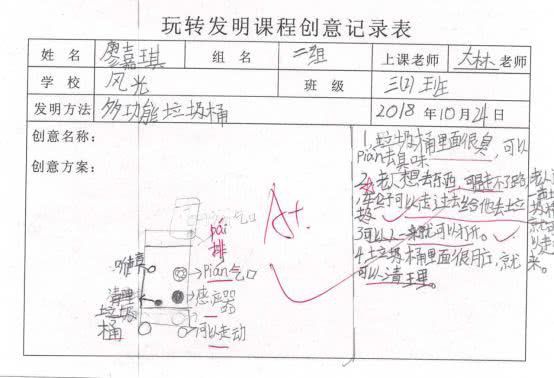 玩转发明课程创意记录表
姓 名 廖嘉琪 组 名 二组 上课老师 大林 老师
学 校 风光 班 级 三(2)班
发明方法 多功能垃圾桶 2018 年 10 月 24 日
创意名称:
创意方案:
1.垃圾桶里面很臭,可以
piàn去臭味
2.老人想去东西,可是走不了路,
可以走过去给他去垃
圾
3.可以人一来就可以打开。
4.土圾桶里面很脏,就
可以清理
来。
A+
气口
pái
排
piàn气口
感应器
可以走动
清理
垃圾
桶